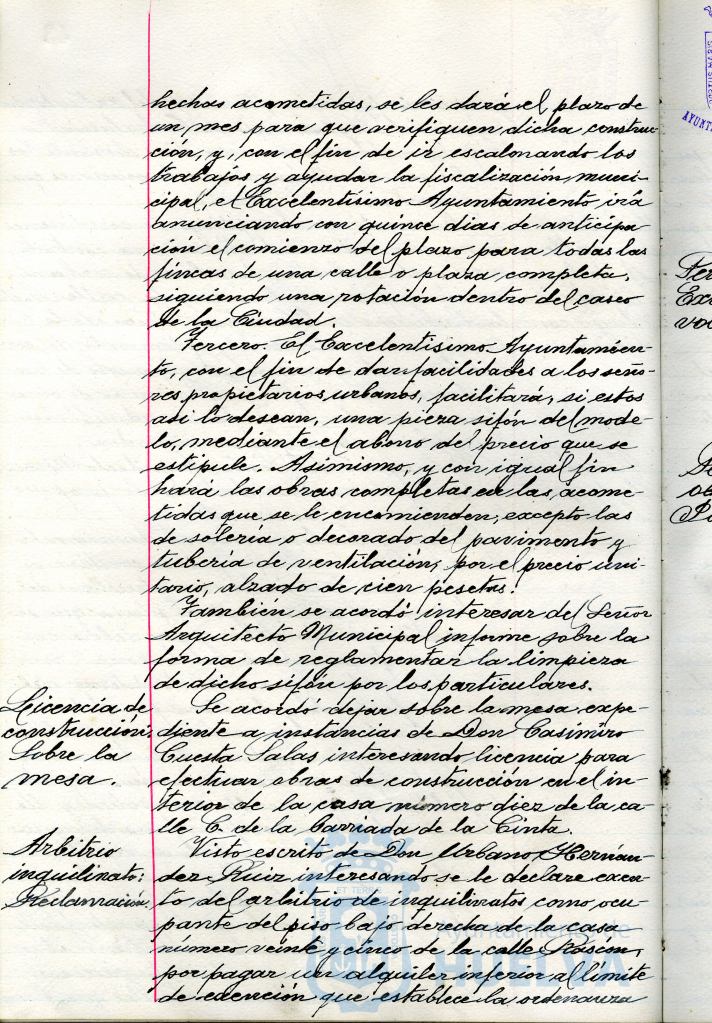 hechas acometidas, se les dará el plazo de
un mes para que verifiquen dicha construc-
ción, y, con el fin de ir escalonando los
trabajos y ayudar la fiscalización muni-
cipal, el Excelentísimo Ayuntamiento irá
anunciando con quince dias de anticipa-
ción el comienzo del plazo para todas las
fincas de una calle o plaza completa,
siguiendo una rotación dentro del casco
de la Ciudad.
Tercero. El Excelentísimo Ayuntamien-
to, con el fin de dar facilidades a los seño-
res propietarios urbanos, facilitará, si estos
asi lo desean, una pieza sifón del mode-
lo, mediante el abono del precio que se
estipule. Asimismo, y con igual fin
hará las obras completas en las acome-
tidas que se le encomienden, excepto las
de solería o decorado del pavimento y
tubería de ventilación, por el precio uni-
tario, alzado de cien pesetas.
También se acordó interesar del Señor
Arquitecto Municipal informe sobre la
forma de reglamentar la limpieza
de dicho sifón por los particulares.
Licencia de
construcción:
Sobre la
mesa.
Se acordó dejar sobre la mesa expe-
diente a instancias de Don Casimiro
Cuesta Salas interesando licencia para
efectuar obras de construcción en el in-
terior de la casa número diez de la ca-
lle C. de la barriada de la Cinta.
Arbitrio
inquilinato:
Reclamación.
Visto escrito de Don Urbano Hernán-
dez Ruiz interesando se le declare exen-
to del arbitrio de inquilinatos como ocu-
pante del piso bajo derecha de la casa
número veinte y cinco de la calle Rascón,
por pagar un alquiler inferior al límite
de exención que establece la ordenanza
Ayuntamiento de
HUELVA